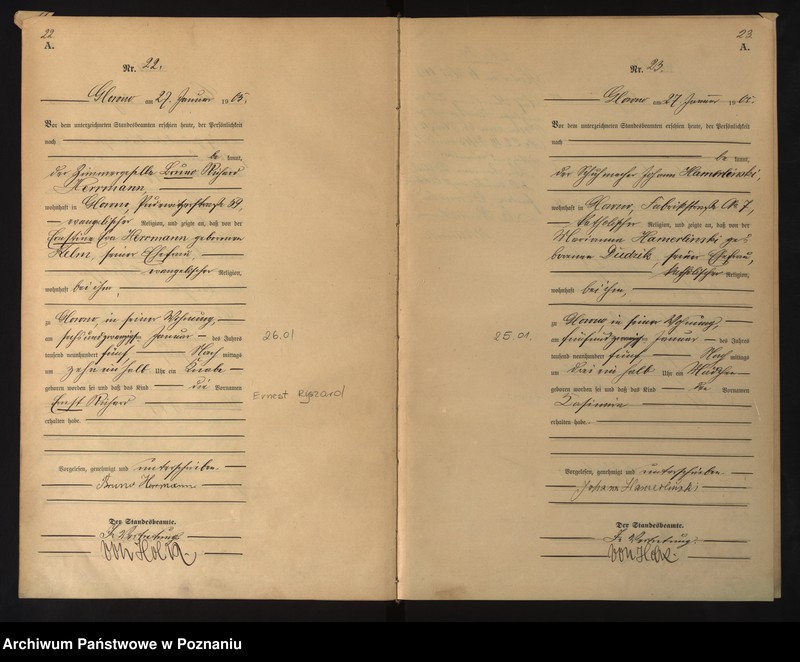 22.
A.
Nr. 22.
am 27. Januar 1905.
Vor dem unterzeichneten Standesbeamten erschien heute, der Persönlichkeit
nach
be kannt,
der Zimmergeselle Bruno Richard
Herrmann,
wohnhaft in 49,
evangelischer Religion, und zeigte an, daß von der
Ernstine Herrmann geborenen
Helm, seiner Ehefrau,
evangelischer Religion,
wohnhaft bei ihm,
zu in seiner Wohnung,
am sechsundzwanzigsten Januar des Jahres
tausend neunhundert fünf Nach mittags
um zehn ein halb Uhr ein Knabe
geboren worden sei und daß das Kind die Vornamen
Ernst Richard
erhalten habe.
Vorgelesen, genehmigt und unterschrieben.
Bruno Herrmann
Der Standesbeamte.
In Vertretung.
26.01
Ernest Ryszard
25.01.
23.
A.
Nr. 23.
am 27 Januar 1905.
Vor dem unterzeichneten Standesbeamten erschien heute, der Persönlichkeit
nach
be kannt,
der Schuhmacher Johann Hamerlinski,
wohnhaft in Fabrikstraße No 7,
katholischer Religion, und zeigte an, daß von der
Marianna Hamerlinski ge-
borenen seiner Ehefrau,
katholischer Religion,
wohnhaft bei ihm,
zu in seiner Wohnung,
am fünfundzwanzigsten Januar des Jahres
tausend neunhundert fünf Nach mittags
um drei ein halb Uhr ein Mädchen
geboren worden sei und daß das Kind den Vornamen
Kasimira
erhalten habe.
Vorgelesen, genehmigt und unterschrieben.
Johann Hamerlinski
Der Standesbeamte.
In Vertretung.
Archiwum Państwowe w Poznaniu